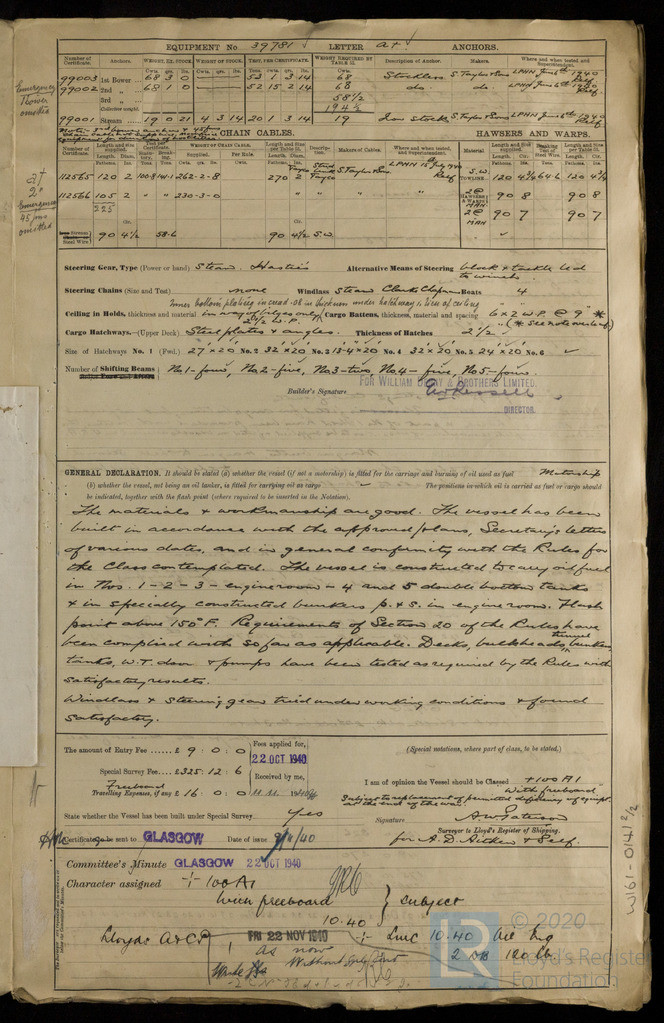 EQUIPMENT No 39781 LETTER at ANCHORS.
Number of Certificate. Anchors. WEIGHT, EX. STOCK WEIGHT OF STOCK. TEST, PER CERTIFICATE. WEIGHT REQUIRED BY TABLE 31. Description of Anchor. Makers. Where and when tested and Superintendent.
99003 1st Bower 68 3 0 52 1 3 14 68 Stockless S. Taylor & Sons LPHN June 6th 1940
99002 2nd " 68 1 0 52 15 2 14 68 do. do. LPHN June 6th 1940
3rd " 58½
Collective weight 194½
99001 Stream 19 0 21 4 3 14 20 1 3 14 19 Iron Stock S. Taylor & Sons LPHN June 6th 1940
Emergency
Bower
omitted
CHAIN CABLES. HAWSERS AND WARPS.
112565 120 2 262-2-8 270 2 S. Taylor & Sons LPHN July 1940 S.W. TOWLINE 120 4¾ 120 4¾
112566 105 2 " " 230-3-0 " " " 2 @ HAWSERS & WARPS 90 8 90 8
225 2 @ 90 7 90 7
at
2"
Emergency
45 fms
omitted
Stream 90 4½ 58.6 90 4½ S.W.
Steering Gear, Type (Power or hand) Steam, Hastie's Alternative Means of Steering block & tackle led to winch.
Steering Chains (Size and Test) none Windlass Steam Clarke Chapman Boats 4
Inner bottom plating incrd .08 in thickness under hatchways in lieu of ceiling
Ceiling in Holds, thickness and material in way of bilges only 2½ W.P. Cargo Battens, thickness, material and spacing 6 x 2 W.P. @ 9"
(* See note overleaf)
Cargo Hatchways.-(Upper Deck). Steel plates & angles. Thickness of Hatches 2½
Size of Hatchways No. 1 (Fwd.) 27 x 20 No. 2 32 x 20 No. 3 13-4 x 20 No. 4 32 x 20 No. 5 24 x 20 No. 6
Number of Shifting Beams No. 1-four, No. 2-five, No. 3-two, No. 4-five, No. 5-four.
FOR WILLIAM DENNY & BROTHERS LIMITED.
Builder's Signature
DIRECTOR.
GENERAL DECLARATION. It should be stated (a) whether the vessel (if not a motorship) is fitted for the carriage and burning of oil used as fuel Motorship
(b) whether the vessel, not being an oil tanker, is fitted for carrying oil as cargo The positions in which oil is carried as fuel or cargo should
be indicated, together with the flash point (where required to be inserted in the Notation).
The materials & workmanship are good. The vessel has been
built in accordance with the approved plans, Secretary's letters
of various dates, and in general conformity with the Rules for
the Class contemplated. The vessel is constructed to carry oil fuel
in Nos. 1-2-3-engine room-4 and 5 double bottom tanks
& in specially constructed bunkers p. & s. in engine room. Flash
point above 150°F. Requirements of Section 20 of the Rules have
been complied with so far as applicable. Decks, bulkheads, tunnel, bunkers
tanks, W.T. door & pumps have been tested as required by the Rules with
satisfactory results.
Windlass & Steering gear tried under working conditions & found
satisfactory.
The amount of Entry Fee £ 9 : 0 : 0 Fees applied for, (Special notations, where part of class, to be stated.)
22 OCT 1940
Special Survey Fee £325 : 12 : 6 Received by me, I am of opinion the Vessel should be Classed +100A1
Freeboard
Travelling Expenses, if any £ 16 : 0 : 0 With freeboard
Subject to replacement of permitted deficiency of equipt
at the end of the war.
State whether the Vessel has been built under Special Survey. Yes Signature A. W. Paterson
Surveyor to Lloyd's Register of Shipping.
Certificate to be sent to GLASGOW Date of issue 9/11/40 for A. D. Aitken & Self.
Committee's Minute GLASGOW 22 OCT 1940
Character assigned +100A1
With freeboard Subject
10.40
Lloyds A&CP FRI 22 NOV 1940 LMC 10.40 Oil Eng
As now 2 DB 120 lb
W161-0141 2/2
LR © 2020
Lloyd's Register
Foundation